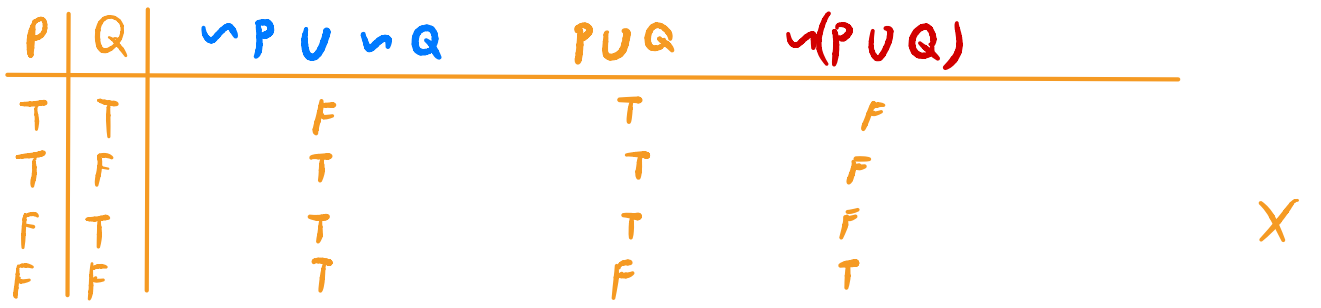 P Q ~P ∪ ~Q P∪Q ~(P ∪ Q)
T T F T F
T F T T F
F T T T F X
F F T F T